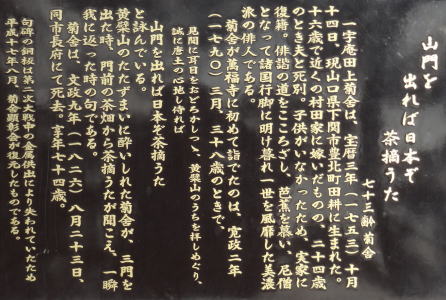 山門を
出れば日本ぞ
茶摘うた
七十三齢菊舎
一字庵田上菊舎は、宝暦三年(一七五三)十月
十四日、現山口県下関市豊北町田耕に生まれた。
十六歳で近くの村田家に嫁いだものの、二十四歳
のとき夫と死別。子供がいなかったため、実家に
復籍。俳諧の道をこころざし、芭蕉を慕い、尼僧
となって諸国行脚に明け暮れ、一世を風靡した美濃
派の俳人である。
菊舎が萬福寺に初めて詣でたのは、寛政二年
(一七九〇)三月、三十八歳のときで、
見聞に耳目をおどろかしつゝ、黄檗山のうちを拝しめぐり、
誠に唐土の心地し侍れば
山門を出れば日本ぞ茶摘うた
と詠んでいる。
黄檗山のたたずまいに酔いしれた菊舎が、三門を
出た時、門前の茶畑から茶摘うたが聞こえ、一瞬
我に返った時の句である。
菊舎は、文政九年(一八二六)八月二十三日、
同市長府にて死去。享年七十四歳。
句碑の銅板は第二次大戦中の金属供出により失われていたため
平成十八年八月、菊舎顕彰会が復元したものである。